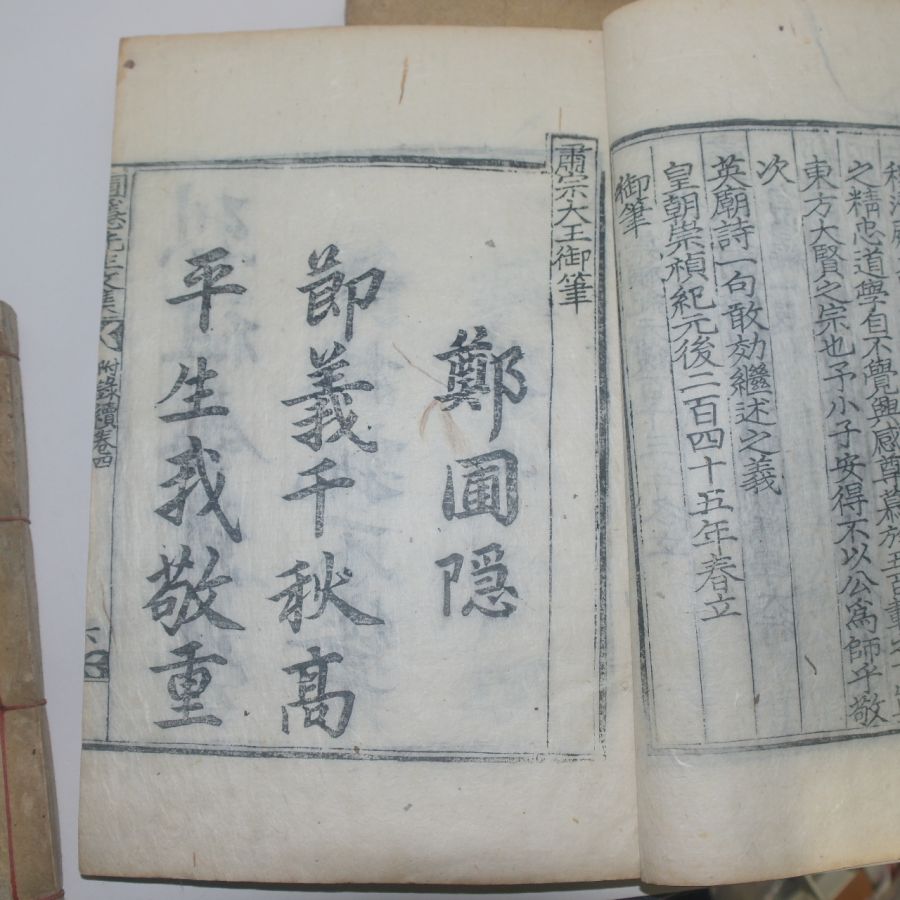 之精忠道學自不覺興感尊慕於五百載之
東方大賢之宗也予小子安得不以公爲師乎敬
次
英廟詩一句敢効繼述之義
皇朝崇禎紀元後二百四十五年春立
御筆
肅宗大王御筆
鄭圃隠
莭義千秋高
平生我敬重
圃隱先生文集 附錄續卷四 六